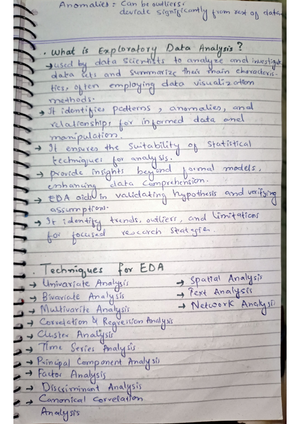 Anomalies → Can be outliers.
deviate significantly from rest of data
. What is Exploratory Data Analysis?
→ used by data scientists to analyze and investigate
data sets and summarize their main characteris-
tics, often employing data visualization
methods.
→ It identifies patterns, anomalies, and
relationships for informed data and
manipulation.
→ It ensures the Suitability of statistical
techniques for analysis.
→ provide insights beyond formal models,
enhancing data comprehension.
→ EDA aids in validating hypothesis and verifying
assumptions.
→ It identify trends, outliers, and limitations
for focused research
. Techniques for EDA
→ Univariate Analysis
→ Spatial Analysis
→ Bivariate Analysis
→ Text Analysis
→ Multivariate Analysis
→ Network Analysis
→ Correlation & Regression Analysis
→ Cluster Analysis
→ Time Series Analysis
→ Principal Component Analysis
→ Factor Analysis
→ Discriminant Analysis
→ Canonical Correlation
Analysis